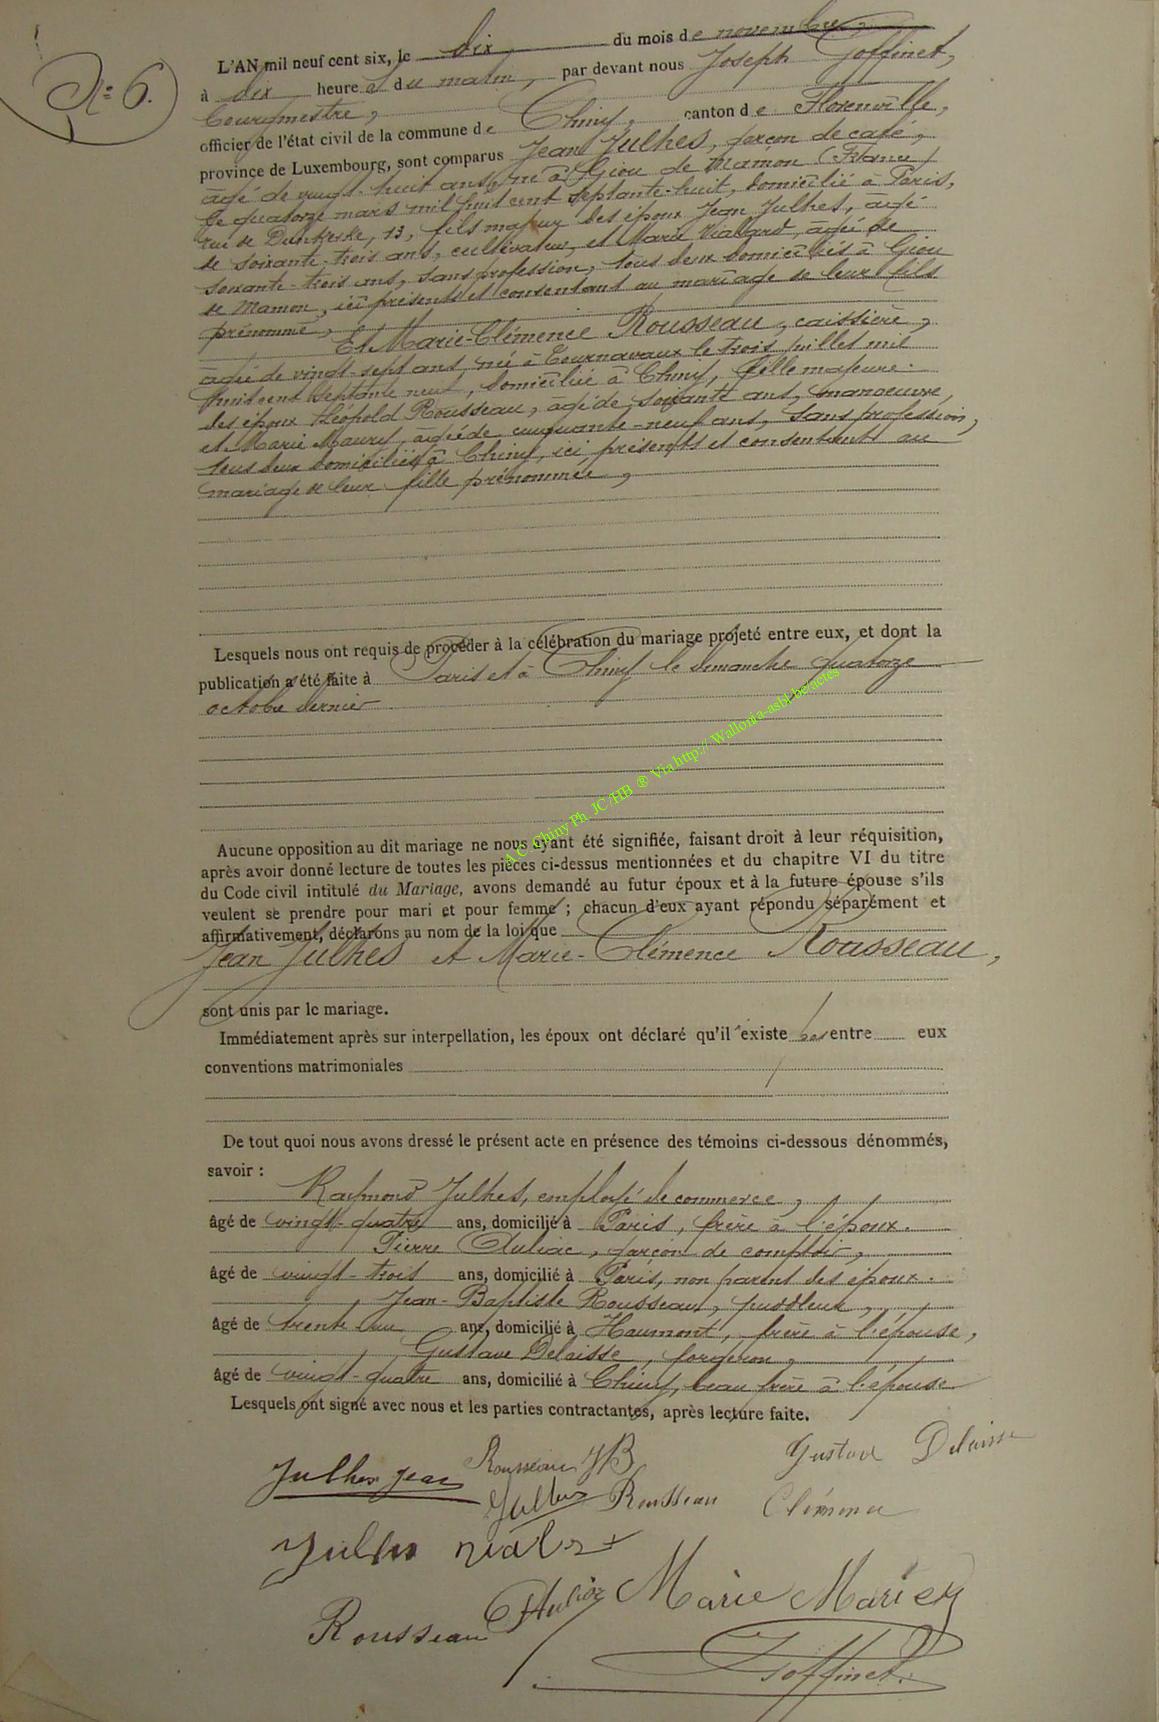 N° 6.
L'AN mil neuf cent six, le dix du mois de novembre,
à dix heures du matin, par devant nous Joseph Goffinet,
bourgmestre,
officier de l'état civil de la commune de Chiny, canton de Florenville,
province de Luxembourg, sont comparus Jean Julhes, garçon de café,
âgé de vingt-huit ans, né à Giou de Mamon (France)
le quatorze mars mil huit cent septante-huit, domicilié à Paris,
rue de Dunkerke, 13, fils majeur des époux Jean Julhes, âgé
de soixante-trois ans, cultivateur, et Marie Vialard, âgée de
soixante-trois ans, sans profession, tous deux domiciliés à Giou
de Mamon, ici présents et consentant au mariage de leur fils
prénommé,
Et Marie-Clémence Rousseau, caissière,
âgée de vingt-sept ans, née à Tournavaux le trois juillet mil
huit cent septante neuf, domiciliée à Chiny, fille majeure
des époux Théopold Rousseau, âgé de soixante ans, manoeuvre,
et Marie Maury, âgée de cinquante-neuf ans, sans profession,
tous deux domiciliés à Chiny, ici présents et consentants au
mariage de leur fille prénommée,
Lesquels nous ont requis de procéder à la célébration du mariage projeté entre eux, et dont la
publication a été faite à Paris et à Chiny le dimanche quatorze
octobre dernier
Aucune opposition au dit mariage ne nous ayant été signifiée, faisant droit à leur réquisition,
après avoir donné lecture de toutes les pièces ci-dessus mentionnées et du chapitre VI du titre
du Code civil intitulé du Mariage, avons demandé au futur époux et à la future épouse s'ils
veulent se prendre pour mari et pour femme ; chacun d'eux ayant répondu séparément et
affirmativement, déclarons au nom de la loi que
Jean Julhes et Marie-Clémence Rousseau,
sont unis par le mariage.
Immédiatement après sur interpellation, les époux ont déclaré qu'il n'existe pas entre eux
conventions matrimoniales
De tout quoi nous avons dressé le présent acte en présence des témoins ci-dessous dénommés,
savoir :
Raymond Julhes, employé de commerce,
âgé de vingt-quatre ans, domicilié à Paris, frère à l'époux.
Pierre Auliac, garçon de comptoir,
âgé de vingt-trois ans, domicilié à Paris, non parent des époux.
Jean-Baptiste Rousseau, puddleur,
âgé de trente un ans, domicilié à Haumont, frère à l'épouse,
Gustave Delaisse, forgeron,
âgé de vingt-quatre ans, domicilié à Chiny, beau frère à l'épouse
Lesquels ont signé avec nous et les parties contractantes, après lecture faite.
A C Chiny Ph JC/HB ® Via http://Wallonia-asbl-be/actes
Julhes Jean Rousseau JB Gustave Delaisse
Julhes Rousseau Clémence
Julhes
Rousseau Auliac Marie
Goffinet.